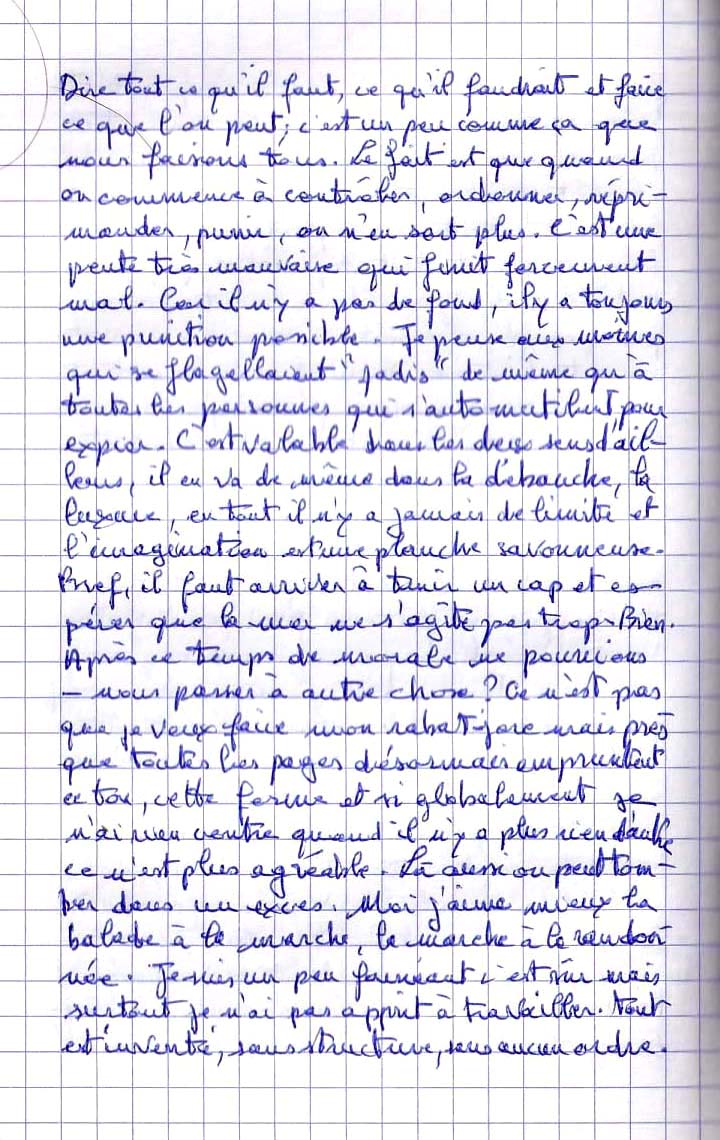 Dire tout ce qu'il faut, ce qu'il faudrait et faire
ce que l'on peut ; c'est un peu comme ça que
nous faisons tous. Le fait est que quand
on commence à contrôler, ordonner, répri-
mander, punir, on n'en sort plus. C'est une
pente très mauvaise qui finit forcement
mal. Car il n'y a pas de fond, il y a toujours
une punition possible. Je pense aux moines
qui se flagellaient "jadis" de même qu'à
toutes les personnes qui s'automutilent pour
expier. C'est valable dans les deux sens d'ail-
leurs, il en va de même dans la débauche, la
luxure, en tout il n'y a jamais de limite et
l'imagination est une planche savonneuse.
Bref, il faut arriver à tenir un cap et es-
pérer que la mer ne s'agite pas trop. Bien.
Après ce temps de morale ne pourrions
- nous passer à autre chose ? Ce n'est pas
que je veux faire mon rabat-joie mais pres
que toutes les pages désormais empruntent
ce ton, cette forme et si globalement je
n'ai rien contre quand il n'y a plus rien d'autre
ce n'est plus agréable. Là aussi on peut tom-
ber dans un excès. Moi j'aime mieux la
balade à la marche, la marche à la randon
née. Je suis un peu fainéant c'est sûr mais
surtout je n'ai pas apprit à travailler. Tout
est inventé, sans structure, sans aucun ordre.